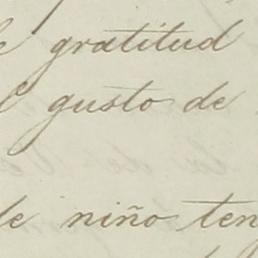 e gratitud
l gusto de
de niño ten